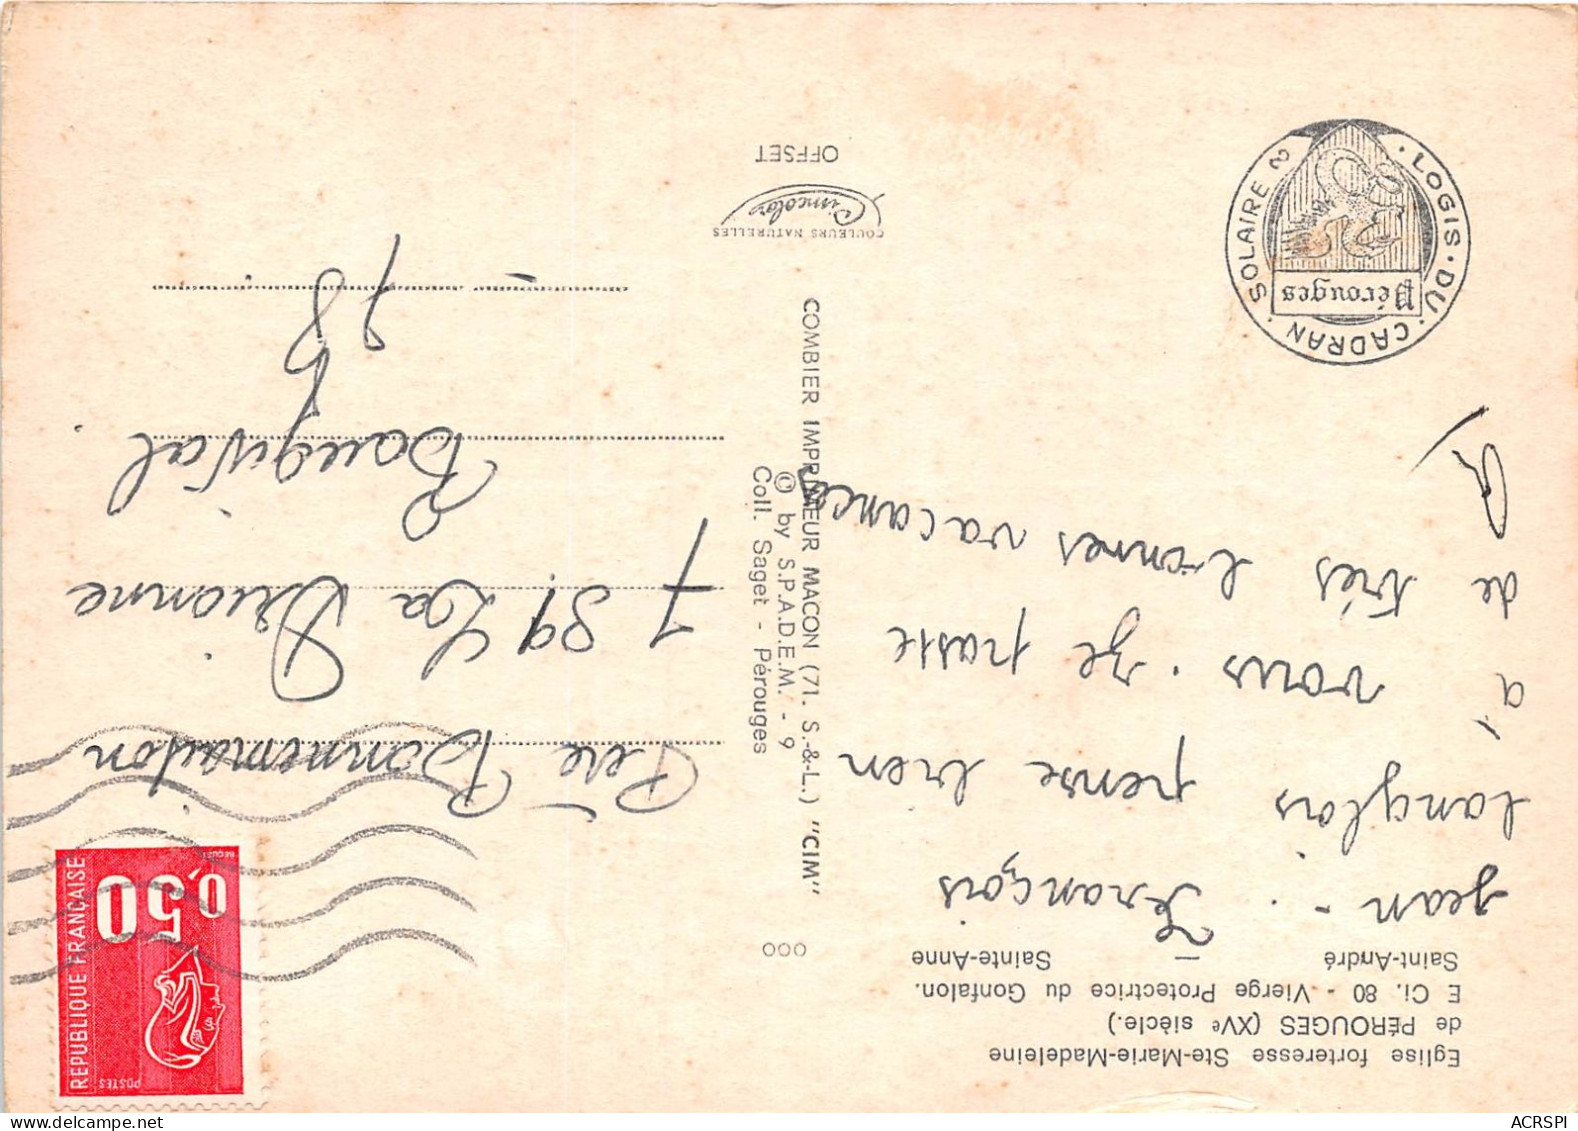 Eglise forteresse Ste-Marie-Madeleine
de PÉROUGES (XVe siècle.)
E Ci. 80 - Vierge Protectrice du Gonfalon.
Saint-André — Sainte-Anne
Jean - François
Langlois pense bien
à vous. Je passe
de très bonnes vacances
LOGIS · DU · CADRAN · SOLAIRE
Pérouges
000
COMBIER IMPRIMEUR MACON (71. S.-&-L.) "CIM"
© by S.P.A.D.E.M. - 9
Coll. Saget - Pérouges
COULEURS NATURELLES
Cimcolor
OFFSET
POSTES
REPUBLIQUE FRANÇAISE
0,50
BEQUET
Père Bonnemaison
La
Bougival
78
ACRSPI